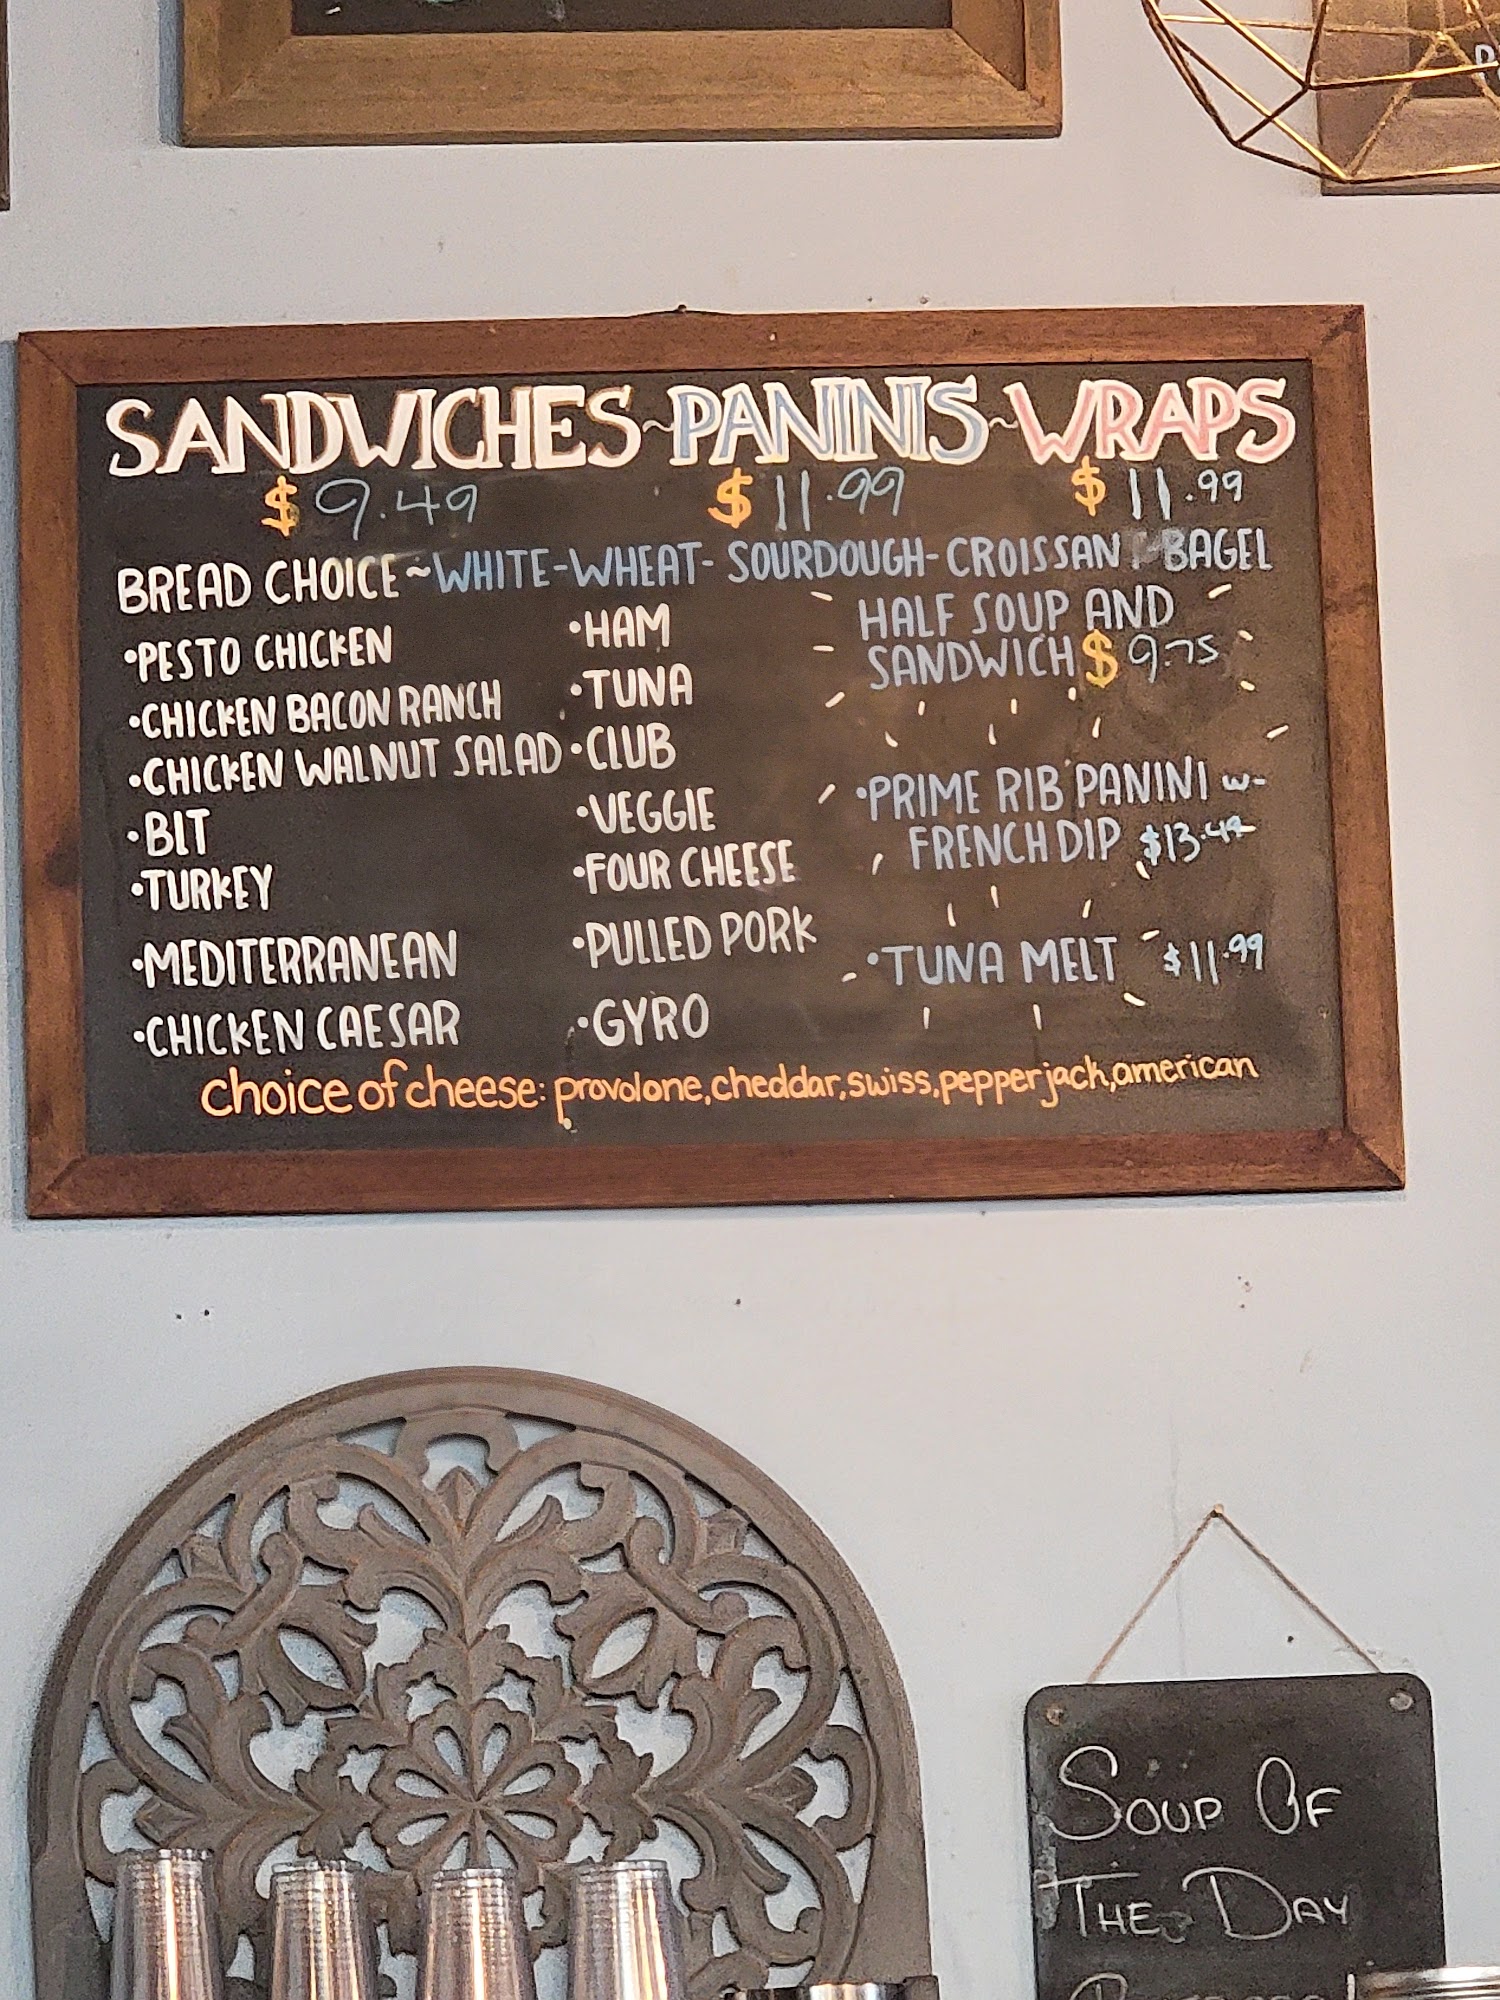 SANDWICHES~PANINIS~WRAPS
$9.49 $11.99 $11.99
BREAD CHOICE~WHITE-WHEAT-SOURDOUGH-CROISSANT BAGEL
•PESTO CHICKEN
•CHICKEN BACON RANCH
•CHICKEN WALNUT SALAD
•BLT
•TURKEY
•MEDITERRANEAN
•CHICKEN CAESAR
•HAM
•TUNA
•CLUB
•VEGGIE
•FOUR CHEESE
•PULLED PORK
•GYRO
HALF SOUP AND
SANDWICH $9.75
•PRIME RIB PANINI w-
FRENCH DIP $13.49
•TUNA MELT $11.99
choice of cheese: provolone,cheddar,swiss,pepper jack,american
SOUP OF
THE DAY